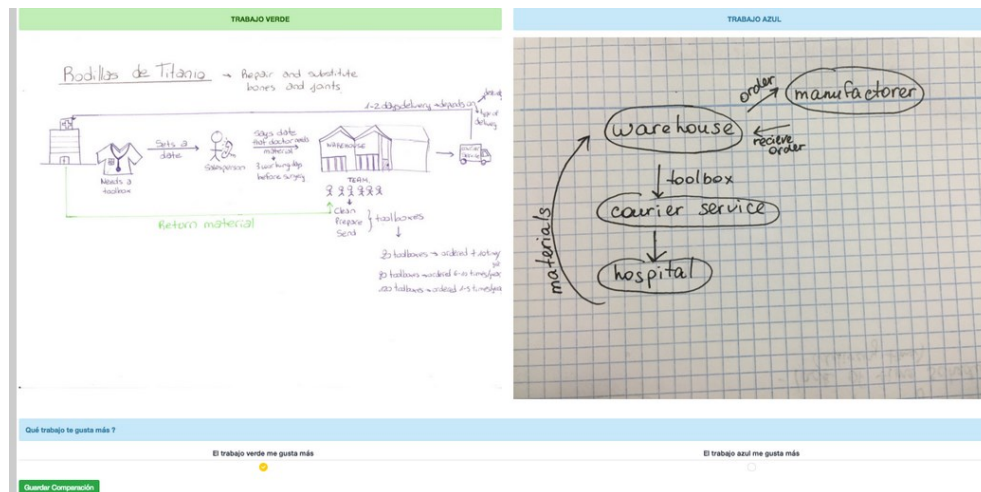 TRABAJO VERDE
Rodillas de Titanio → Repair and substitute
bones and joints
1-2 days delivery → depends on
type of
delivery
Needs a
toolbox
Sets a
date
Salesperson
Says date
that doctor needs
material
+
before surgery
WAREHOUSE
TEAM
Clean
Prepare
Send
toolboxes
Return material
20 toolboxes → ordered
80 toolboxes → ordered
toolboxes → ordered
TRABAJO AZUL
order
manufactorer
warehouse
recieve
order
toolbox
courier service
hospital
materials
Qué trabajo te gusta más ?
El trabajo verde me gusta más
El trabajo azul me gusta más
Guardar Comparación